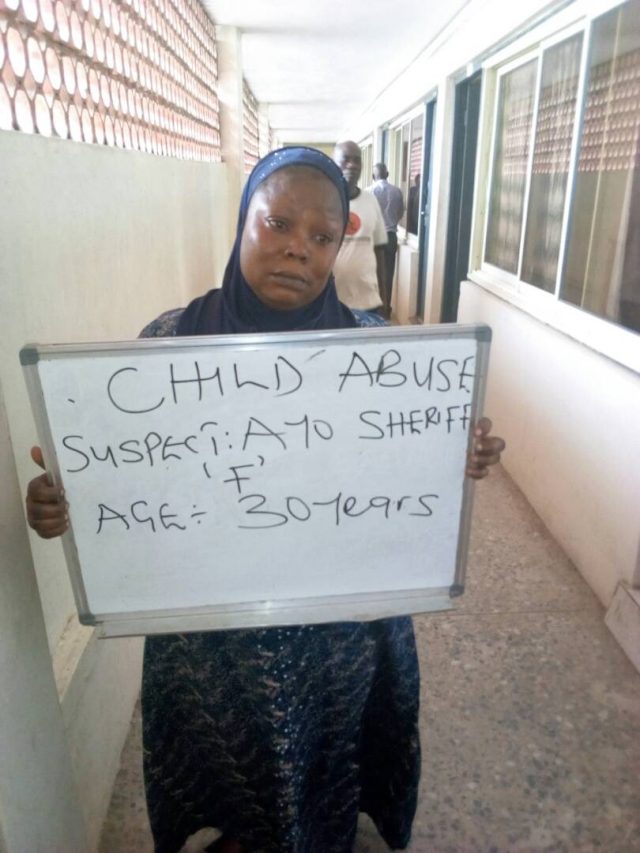 . CHILD ABUSE
SUSPECT: AYO SHERIFF
'F'
AGE: 30 years